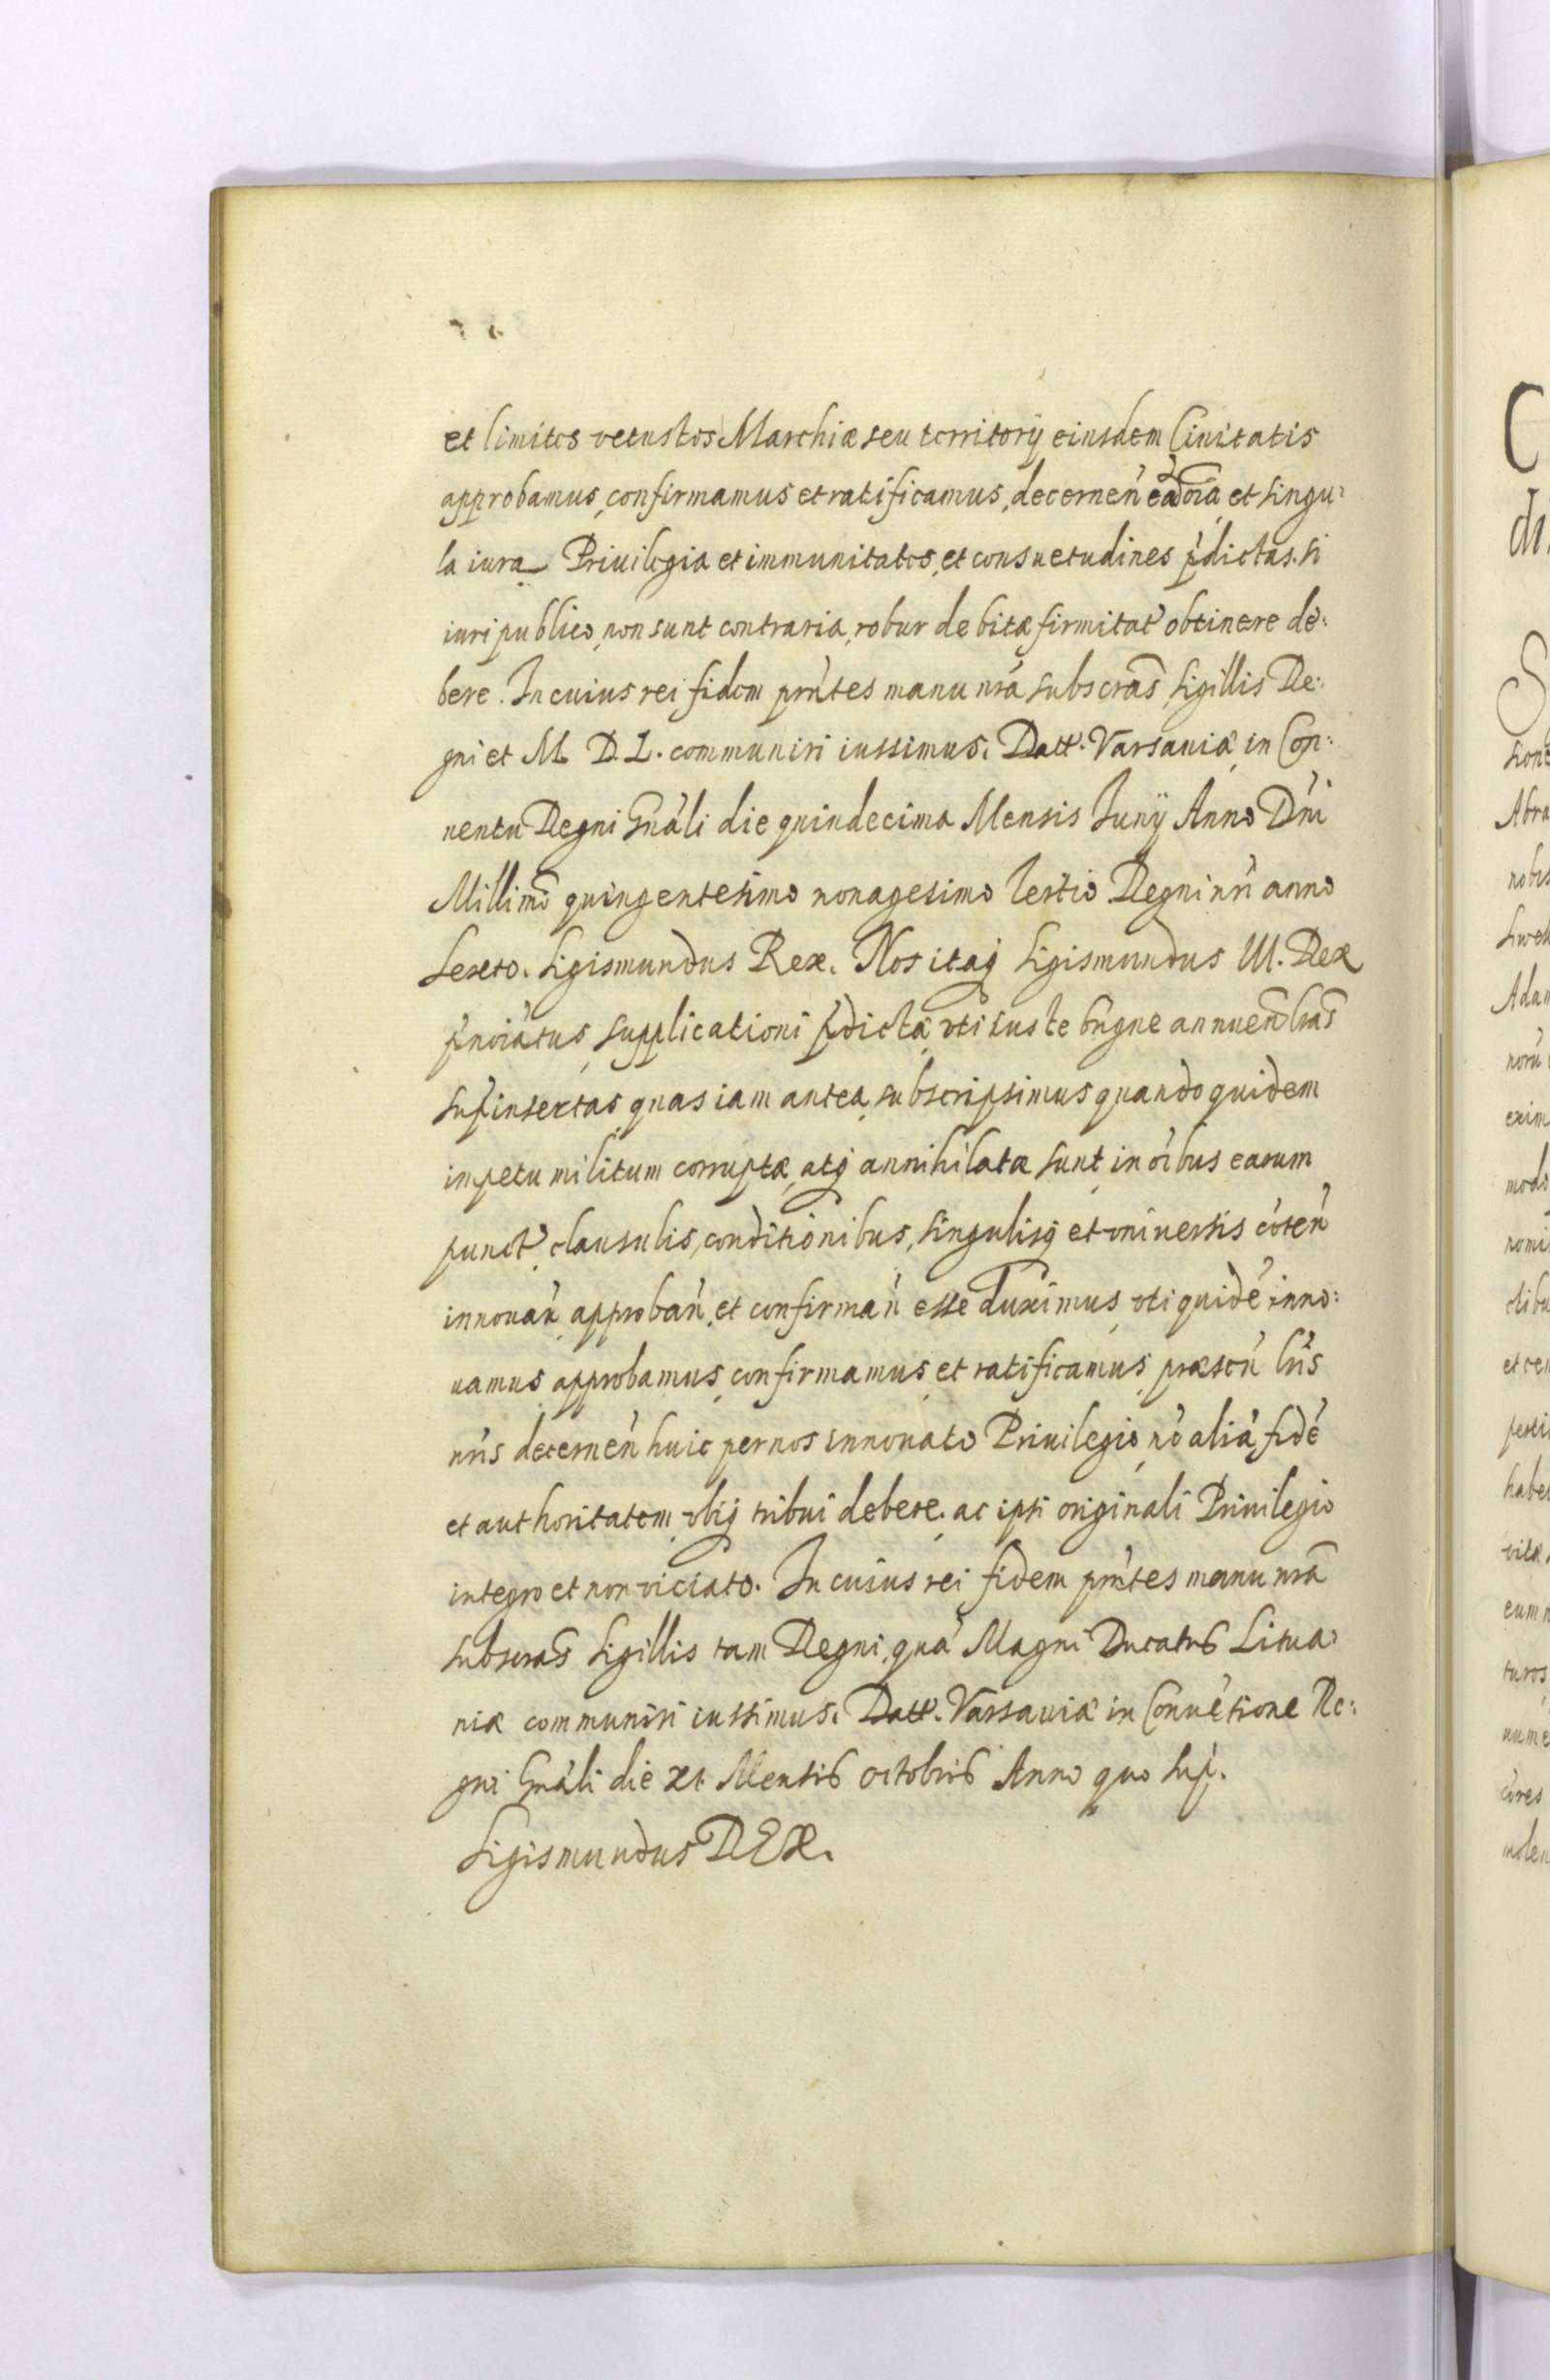 et limites vetustos Marchiæ seu territorij eiusdem Ciuitatis
approbamus, confirmamus et ratificamus, decernen̄ ea oīa et singu:
la iura Priuilegia et immunitates, et consuetudines p̄dictas. si
iuri publico, non sunt contraria, robur debitæ firmitat̄ obtinere de:
bere. In cuius rei fidem pn̄tes manu nr̄a subscras̄ Sigillis Re:
gni et M. D. L. communiri iussimus. Datt. Varsauiæ in Con:
uentu Regni Gn̄ali die quindecima Mensis Iunij Anno Dn̄i
Millimō quingentesimo nonagesimo tertio Regni nr̄i anno
sexto. Sigismundus Rex. Nos itaq̄ Sigismundus III. Rex
p̄noīatus supplicationi p̄dictæ vti iuste bn̄gne annuen̄ lras̄
sup̄insertas quas iam antea subscripsimus quandoquidem
impetu militum corruptæ atq̄ annihilatæ sunt in oībus earum
punct̄ clausulis, conditionibus, singulisq̄ et vniuersis cōten̄
innouan̄ approban̄ et confirman̄ esse duximus vti quidē inno:
uamus approbamus confirmamus et ratificamus præsen̄ lrīs
nrīs decernen̄ huic per nos innouato Priuilegio nō aliā fidē
et authoritatem vbiq̄ tribui debere. ac ipsi originali Priuilegio
integro et non viciato. In cuius rei fidem pn̄tes manu nr̄a
subscras̄ Sigillis tam Regni quā Magni Ducatus Litua:
niæ communiri iussimus. Datt. Varsauiæ in Conuētione Re:
gni Gn̄ali die Mensis octobris Anno quo sup̄.
Sigismundus REX.